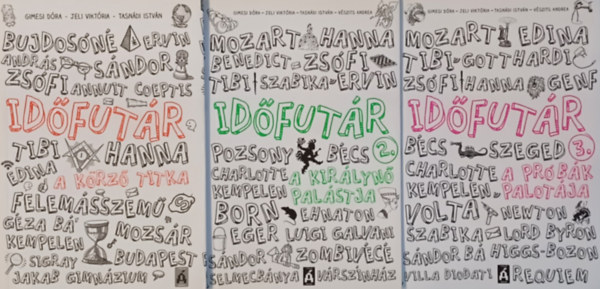 GIMESI DÓRA - JELI VIKTÓRIA - TASNÁDI ISTVÁN
BUJDOSÓNÉ ERVIN
ANDRÁS SÁNDOR
ZSÓFI ANNUIT COEPTIS
IDŐFUTÁR
TIBI HANNA
EDINA A KÖRZŐ TITKA
FELEMÁSSZEMŰ
GÉZA BÁ MOZSÁR
KEMPELEN
SIGRAY BUDAPEST
JAKAB GIMNÁZIUM Á
GIMESI DÓRA - JELI VIKTÓRIA - TASNÁDI ISTVÁN - VÉSZITS ANDREA
MOZART HANNA
BENEDICT ZSÓFI
TIBI SZABIKA ERVIN
IDŐFUTÁR
POZSONY BÉCS 2.
CHARLOTTE A KIRÁLYNŐ
KEMPELEN PALÁSTJA
BORN EHNATON
EGER LUIGI GALVANI
SÁNDOR ZOMBIVÉCÉ
SELMECBÁNYA Á VÁRSZÍNHÁZ
GIMESI DÓRA - JELI VIKTÓRIA - TASNÁDI ISTVÁN - VÉSZITS ANDREA
MOZART EDINA
TIBI GOTTHARDI
ZSÓFI HANNA GENF
IDŐFUTÁR
BÉCS SZEGED 3.
CHARLOTTE A PRÓBÁK
KEMPELEN PALOTÁJA
VOLTA NEWTON
SZABIKA LORD BYRON
SÁNDOR BÁ HIGGS-BOZON
VILLA DIODATI Á REQUIEM